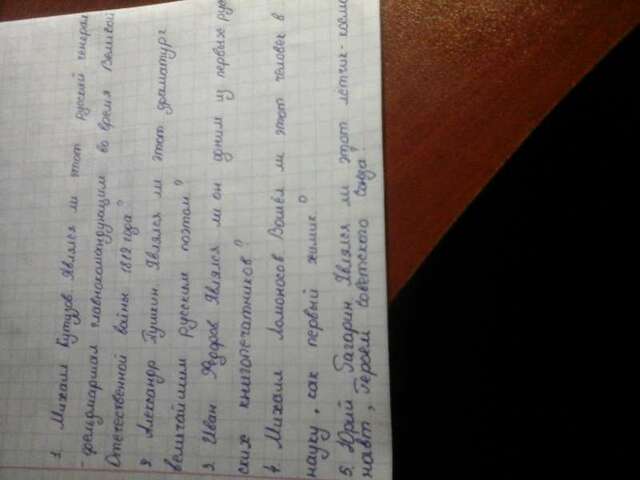 1. Михаил Кутузов Являлся ли этот русский генерал
- фельдмаршал главнокомандующим во время Великой
Отечественной войны 1812 года?
2 Александр Пушкин. Являлся ли этот драматург
величайшим русским поэтом?
3 Иван Фёдоров Являлся ли он одним из первых рус
ских книгопечатников?
4. Михаил Ломоносов Вошёл ли этот человек в
науку, как первый химик?
5. Юрий Гагарин. Являлся ли этот лётчик-косм
навт, Героем Советского Союза?